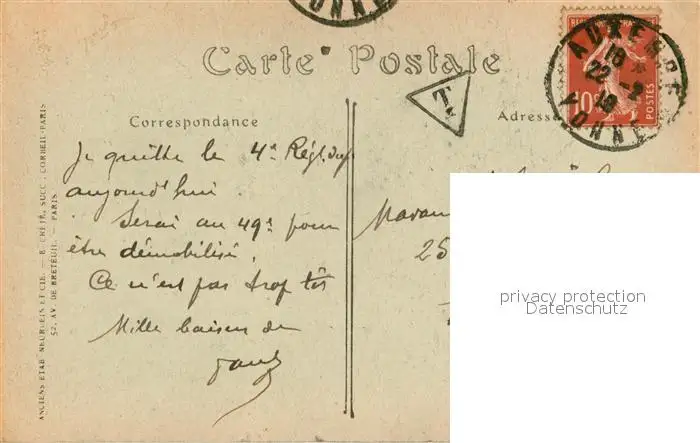 YONNE
Carte Postale
AUXERRE
22 -2
19
YONNE
10c
POSTES
T
Correspondance
Adresse
Je quitte le 4e Régt d'inf
aujourd'hui.
Serai au 49e pour
être démobilisé.
Ce n'est pas trop tôt
Mille baisers de
25
privacy protection
Datenschutz
ANCIENS ETAB. NEURDEIN ET CIE. — E. CRÉTÉ, SUCC. CORBEIL-PARIS
52, AV. DE BRETEUIL — PARIS